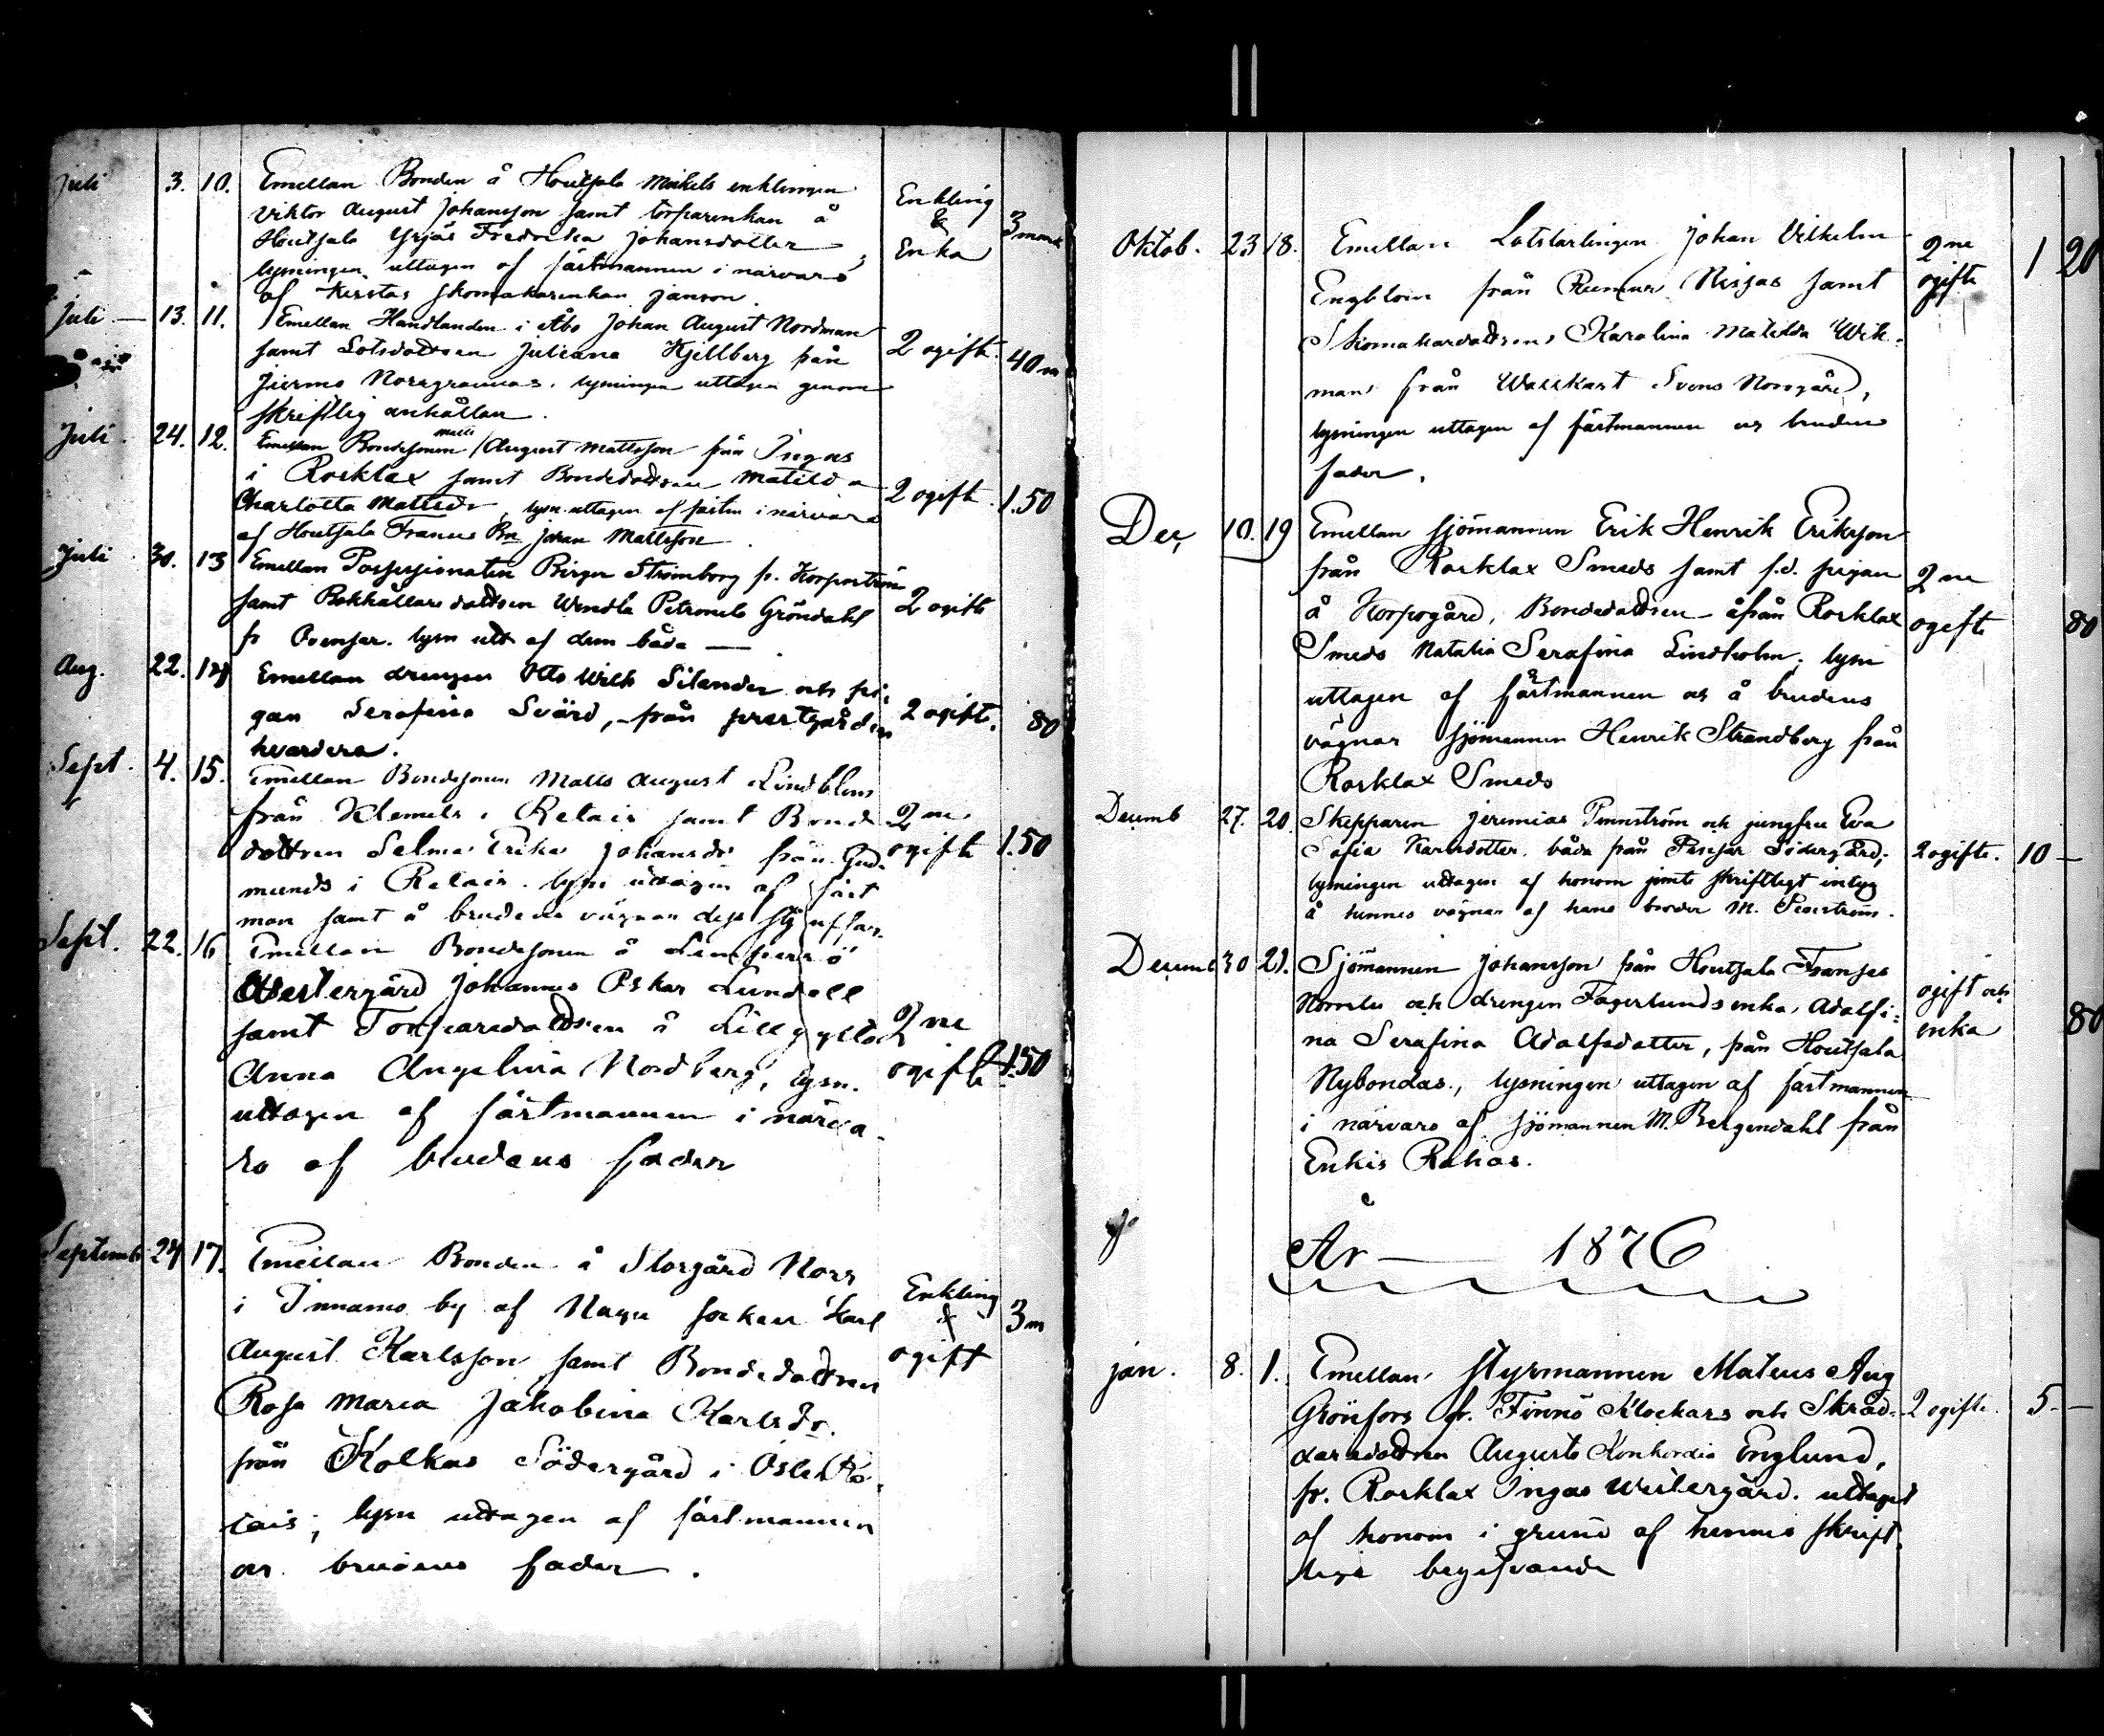 Juli 3. 10. Emellan Bonden å Houtsala Mikels enklingen
Viktor August Johansson samt torparenkan å Enkling
Houtsala Yrjäs Fredrika Johansdotter, & 3 mark
lysningen uttagen af fästmannen i närvaro Enka
af Kerstas skomakarenkan Janson.
Juli 13. 11. Emellan Handlanden i Åbo Johan August Nordman
samt Lotsdottren Juliana Kjellberg från 2 ogifte. 40 m
Jurmo Norrgrannas. lysningen uttagen genom
skriftlig anhållan.
Juli. 24. 12. Emellan Bondesonen Matts August Mattsson från Ingas
i Rosklax samt Bondedottren Matilda
Charlotta Mattsdr, lysn. uttagen af fästm i närvaro 2 ogifte. 1.50
af Houtsala Frannus Bn Johan Mattsson.
Juli 30. 13 Emellan Possessionaten Birger Strömborg fr. Korpoström
samt Bokhållare dottren Wendla Petronela Gröndahl 2 ogifte
fr lysn utt af dem båda —
Aug. 22. 14 Emellan drengen Otto Wilh Silander och pi-
gan Serafina Svärd, från prestgården 2 ogifte. 80
hvardera.
Sept. 4. 15. Emellan Bondesonen Matts August Lindblom
från Klemets i Retais samt Bonde 2 ne
dottren Selma Erika Johansdr från Gud- ogifte 1.50
munds i Retais. lysn uttagen af fäst
man samt å brudens vägnar dess styffar.
Sept. 22. 16 Emellan Bondesonen å Lempersö
Westergård Johannes Oskar Lundell
samt Torparedottren å Lillgyltö 2 ne
Anna Angelina Nordberg, lysn. ogifte 1.50
uttagen af fästmannen i närva-
ro af brudens fader
Septemb. 24 17. Emellan Bonden å Storgård Norr
i Innamo by af Nagu socken Karl Enkling & 3 m
August Karlsson samt Bondedottren ogift
Rosa Maria Jakobina Karlsdr.
från Kolkas Södergård i Öster Re-
tais; lysn uttagen af fästmannen
och brudens fader.
Oktob. 23 18. Emellan Lotslärlingen Johan Vilhelm 2 ne 1 20
Engblom från Rumar Nisjas samt ogifte
Skomakardottren Karolina Matilda Wik-
man från Wattkast Svens Norrgård,
lysningen uttagen af fästmannen och brudens
fader.
Dec, 10. 19 Emellan sjömannen Erik Henrik Erikson
från Rosklax Smeds samt f.d. pigan 2 ne
å Korpogård, Bondedottren från Rosklax ogifte 80
Smeds Natalia Serafina Lindholm. lysn
uttagen af fästmannen och å brudens
vägnar sjömannen Henrik Strandberg från
Rosklax Smeds
Decemb 27. 20. Skepparen Jeremias Pennström och jungfru Eva
Sofia Karlsdotter. båda från Södergård; 2 ogifte. 10 —
lysningen uttagen af honom jemte skriftligt intyg
å hennes vägnar af hans broder M.
Decemb 30 21. Sjömannen Johansson från Houtsala Fransas
Norrstu och drengen Fagerlunds enka, Adolfi- ogift och
na Serafina Adolfsdotter, från Houtsala enka 80
Nybondas., lysningen uttagen af fästmannen
i närvaro af sjömannen M. Bergendahl från
Enkis Rahas.
År — 1876
Jan. 8. 1. Emellan styrmannen Mateus Aug
Grönfors fr. Finnö Klockars och Skräd- 2 ogifte. 5. —
daredottren Augusta Konkordia Englund,
fr. Rosklax Ingas Westergård. uttaget
af honom i grund af hennes skrift-
liga begifvande